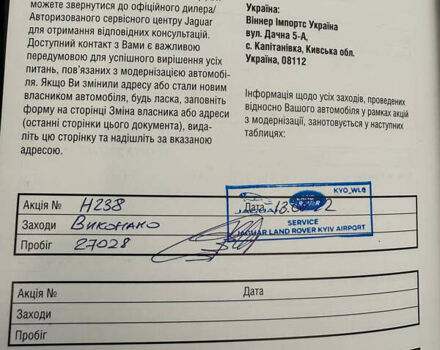 можете звернутися до офіційного дилера/
Авторизованого сервісного центру Jaguar
для отримання відповідних консультацій.
Доступний контакт з Вами є важливою
передумовою для успішного вирішення усіх
питань, пов'язаних з модернізацією автомобі-
ля. Якщо Ви змінили адресу або стали новим
власником автомобіля, будь ласка, заповніть
форму на сторінці Зміна власника або адреси
(останні сторінки цього документа), вида-
літь цю сторінку та надішліть за вказаною
адресою.
Україна:
Віннер Імпортс Україна
вул. Дачна 5-А,
с. Капітанівка, Київська обл.
Україна, 08112
Інформація щодо усіх заходів, проведених
відносно Вашого автомобіля у рамках акцій
з модернізації, занотовується у наступних
таблицях:
KYO_WL@
Акція № H238 Дата
LAND ROVER
JAGUAR
Заходи Виконано
SERVICE
JAGUAR LAND ROVER KYIV AIRPORT
Пробіг 27028
Акція № Дата
Заходи
Пробіг